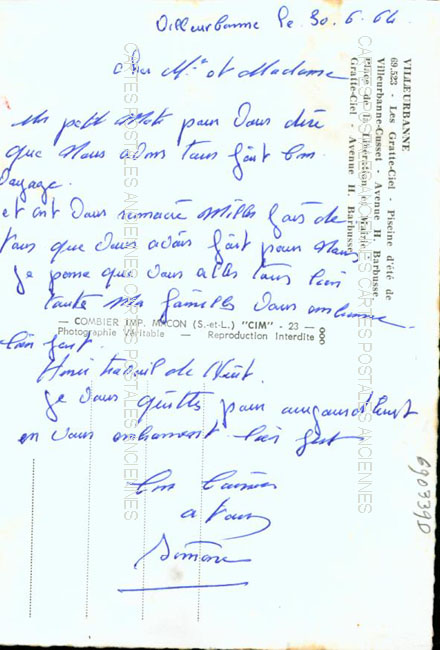 Villeurbanne le 30.6.64
cher Mr et Madame
un petit mots pour Vous dire
que Nous avons tous fait bon
Voyage.
et ont Vous remercie Milles fois de
tous que Vous avais fait pour Nous
Je pense que Vous alles tous bien
toute Ma familles Vous embrasse
bien fort.
Henri travail de Nuit.
Je Vous quittes pour aujourd'huit
en Vous embrassent bien fort
bon baisers
a tous
Simone
VILLEURBANNE
69.523 - Les Gratte-Ciel - Piscine d'été de
Villeurbanne-Cusset - Avenue H. Barbusse
Place de la Libération et Mairie
Gratte-Ciel - Avenue H. Barbusse
— COMBIER IMP. MACON (S.-et-L.) "CIM" - 23 —
Photographie Véritable — Reproduction Interdite
CARTES POSTALES ANCIENNES
CARTES POSTALES ANCIENNES
CARTES POSTALES ANCIENNES
6903390